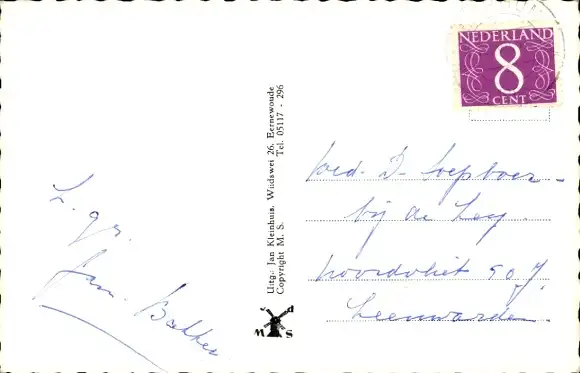 NEDERLAND
8
CENT
Uitg.: Jan Kleinhuis, Wudswei 26, Eernewoude
Copyright M. S. Tel. 05117 - 296
M S
L. gr.
fam. Bakker
wed. D.
bij de Leeg.
Noordvliet 90 J.
Leeuwarden.